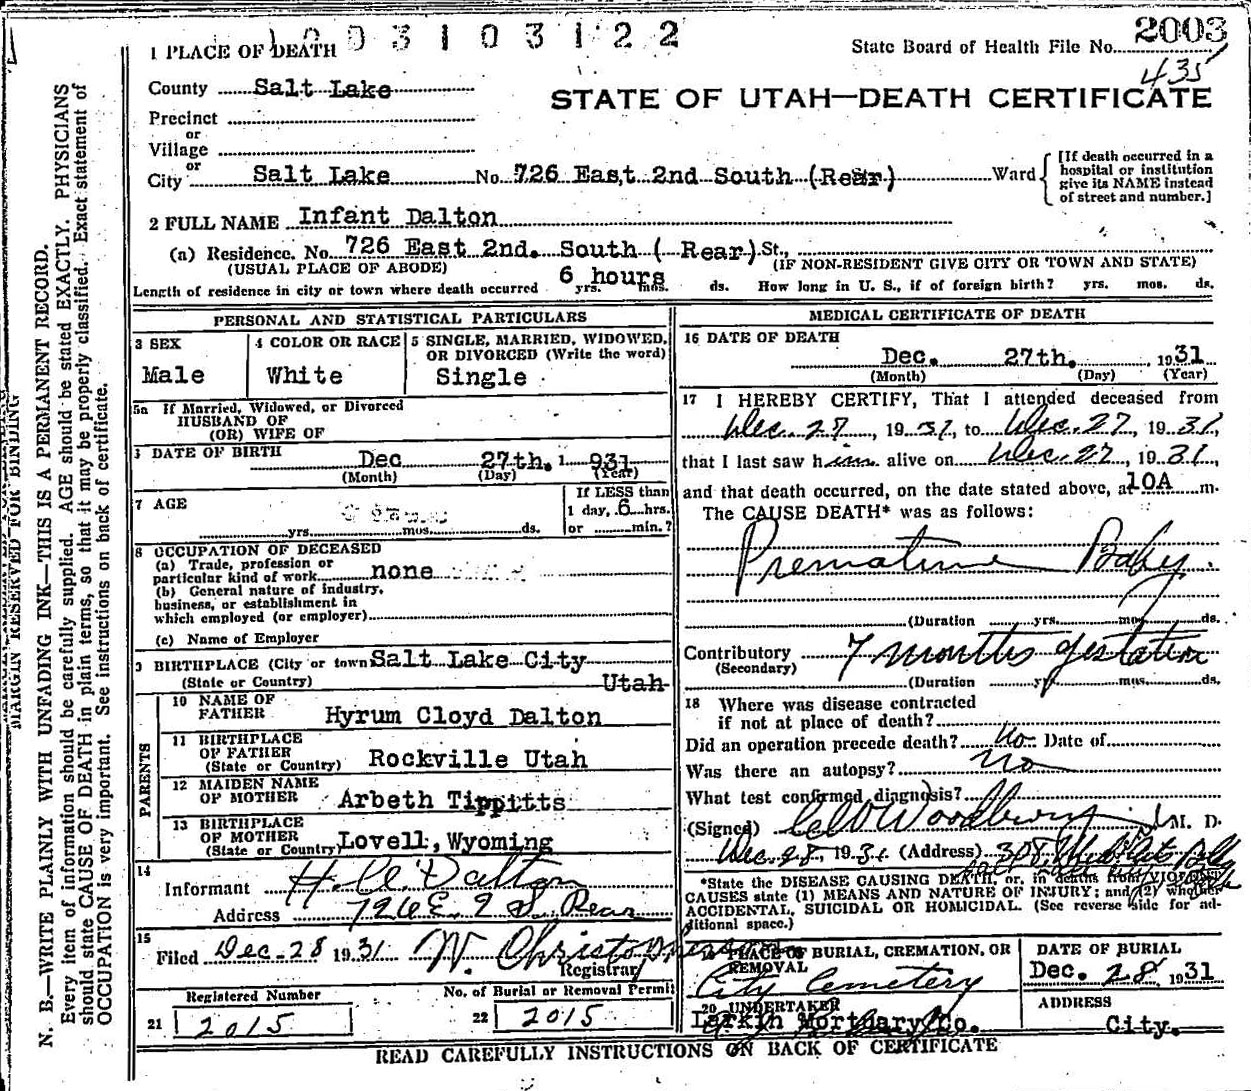 1 PLACE OF DEATH
1003103122
State Board of Health File No. 2003
435
County Salt Lake
STATE OF UTAH—DEATH CERTIFICATE
Precinct
or
Village
or
City Salt Lake No. 726 East 2nd South (Rear) Ward
[If death occurred in a hospital or institution give its NAME instead of street and number.]
2 FULL NAME Infant Dalton
(a) Residence. No. 726 East 2nd. South ( Rear) St.,
(USUAL PLACE OF ABODE) (IF NON-RESIDENT GIVE CITY OR TOWN AND STATE)
Length of residence in city or town where death occurred 6 hours yrs. mos. ds. How long in U. S., if of foreign birth? yrs. mos. ds.
PERSONAL AND STATISTICAL PARTICULARS
3 SEX
Male
4 COLOR OR RACE
White
5 SINGLE, MARRIED, WIDOWED, OR DIVORCED (Write the word)
Single
5a If Married, Widowed, or Divorced
HUSBAND OF
(OR) WIFE OF
DATE OF BIRTH
Dec 27th. 1 931
(Month) (Day) (Year)
7 AGE
yrs. mos. ds.
If LESS than
1 day, 6 hrs.
or min.?
8 OCCUPATION OF DECEASED
(a) Trade, profession or
particular kind of work none
(b) General nature of industry,
business, or establishment in
which employed (or employer)
(c) Name of Employer
9 BIRTHPLACE (City or town Salt Lake City
(State or Country) Utah
PARENTS
10 NAME OF FATHER Hyrum Cloyd Dalton
11 BIRTHPLACE OF FATHER (State or Country) Rockville Utah
12 MAIDEN NAME OF MOTHER Arbeth Tippitts
13 BIRTHPLACE OF MOTHER (State or Country) Lovell, Wyoming
14
Informant H. C. Dalton
Address 726 E. 2 S. Rear
15
Filed Dec. 28 1931 W. Christopherson
Registrar
Registered Number
21 2015
No. of Burial or Removal Permit
22 2015
MEDICAL CERTIFICATE OF DEATH
16 DATE OF DEATH
Dec. 27th. 1931
(Month) (Day) (Year)
17 I HEREBY CERTIFY, That I attended deceased from
Dec. 27, 1931, to Dec. 27, 1931,
that I last saw him alive on Dec. 27, 1931,
and that death occurred, on the date stated above, at 10A m.
The CAUSE DEATH* was as follows:
Premature Baby.
(Duration yrs. mos. ds.
Contributory 7 months gestation
(Secondary)
(Duration yrs. mos. ds.
18 Where was disease contracted
if not at place of death?
Did an operation precede death? no Date of
Was there an autopsy? no
What test confirmed diagnosis?
(Signed) Woodbury M. D.
Dec 28, 1931 (Address) 308
*State the DISEASE CAUSING DEATH, or, in deaths from VIOLENT
CAUSES state (1) MEANS AND NATURE OF INJURY; and (2) whether
ACCIDENTAL, SUICIDAL OR HOMICIDAL. (See reverse side for ad-
ditional space.)
19 PLACE OF BURIAL, CREMATION, OR REMOVAL
City Cemetery
DATE OF BURIAL
Dec. 28, 1931
20 UNDERTAKER
Larkin Mortuary Co.
ADDRESS
City.
READ CAREFULLY INSTRUCTIONS ON BACK OF CERTIFICATE
MARGIN RESERVED FOR BINDING
N. B.—WRITE PLAINLY WITH UNFADING INK—THIS IS A PERMANENT RECORD.
Every item of information should be carefully supplied. AGE should be stated EXACTLY. PHYSICIANS
should state CAUSE OF DEATH in plain terms, so that it may be properly classified. Exact statement of
OCCUPATION is very important. See instructions on back of certificate.